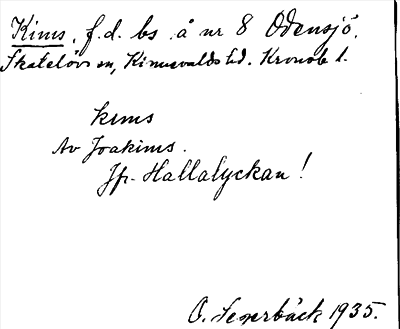 Kims, f.d. bs å nr 8 Odensjö.
Skatelövs sn, Kinnevalds hd. Kronob l.
kims
Av Joakims.
Jfr. Hallalyckan!
O. Senerbäck 1935.